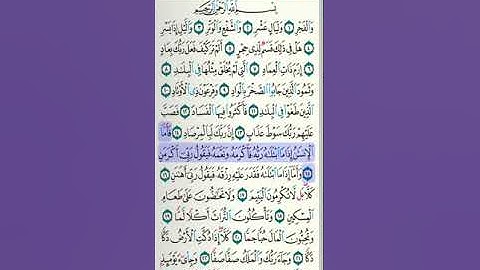 بِسْمِ اللَّهِ الرَّحْمَٰنِ الرَّحِيمِ
وَالْفَجْرِ ١ وَلَيَالٍ عَشْرٍ ٢ وَالشَّفْعِ وَالْوَتْرِ ٣ وَاللَّيْلِ إِذَا يَسْرِ
٤ هَلْ فِي ذَٰلِكَ قَسَمٌ لِذِي حِجْرٍ ٥ أَلَمْ تَرَ كَيْفَ فَعَلَ رَبُّكَ بِعَادٍ
٦ إِرَمَ ذَاتِ الْعِمَادِ ٧ الَّتِي لَمْ يُخْلَقْ مِثْلُهَا فِي الْبِلَادِ ٨
وَثَمُودَ الَّذِينَ جَابُوا الصَّخْرَ بِالْوَادِ ٩ وَفِرْعَوْنَ ذِي الْأَوْتَادِ ١٠
الَّذِينَ طَغَوْا فِي الْبِلَادِ ١١ فَأَكْثَرُوا فِيهَا الْفَسَادَ ١٢ فَصَبَّ
عَلَيْهِمْ رَبُّكَ سَوْطَ عَذَابٍ ١٣ إِنَّ رَبَّكَ لَبِالْمِرْصَادِ ١٤ فَأَمَّا
الْإِنْسَانُ إِذَا مَا ابْتَلَاهُ رَبُّهُ فَأَكْرَمَهُ وَنَعَّمَهُ فَيَقُولُ رَبِّي أَكْرَمَنِ
١٥ وَأَمَّا إِذَا مَا ابْتَلَاهُ فَقَدَرَ عَلَيْهِ رِزْقَهُ فَيَقُولُ رَبِّي أَهَانَنِ ١٦
كَلَّا بَلْ لَا تُكْرِمُونَ الْيَتِيمَ ١٧ وَلَا تَحَاضُّونَ عَلَىٰ طَعَامِ
الْمِسْكِينِ ١٨ وَتَأْكُلُونَ التُّرَاثَ أَكْلًا لَمًّا ١٩
وَتُحِبُّونَ الْمَالَ حُبًّا جَمًّا ٢٠ كَلَّا إِذَا دُكَّتِ الْأَرْضُ دَكًّا
دَكًّا ٢١ وَجَاءَ رَبُّكَ وَالْمَلَكُ صَفًّا صَفًّا ٢٢ وَجِيءَ يَوْمَئِذٍ